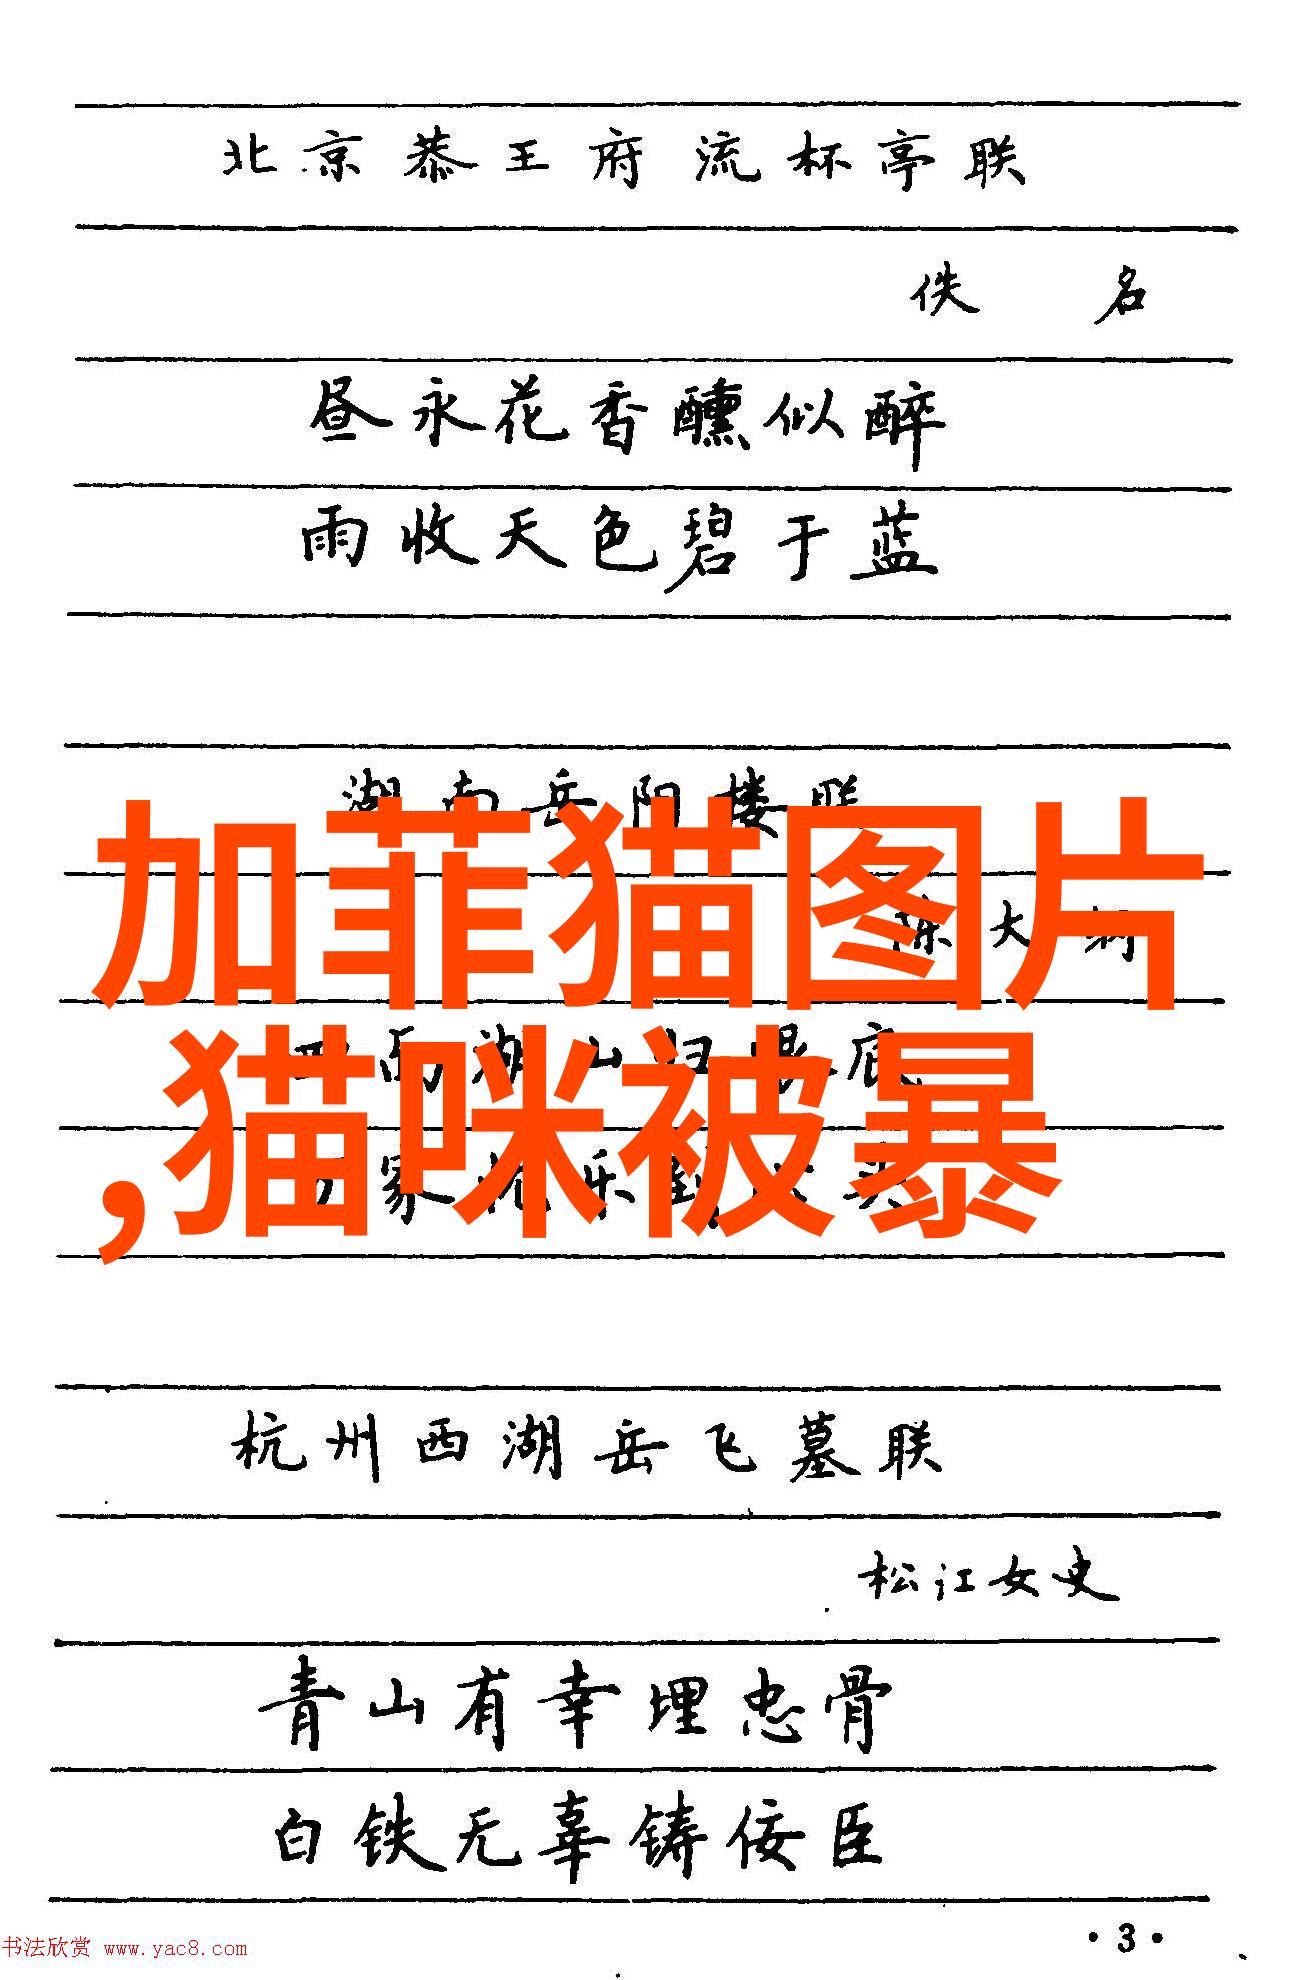 北京恭王府流杯亭联
佚名
昼永花香醺似醉
雨收天色碧于蓝
湖南岳阳楼联
加菲猫图片
陈大纲
,猫咪被暴
杭州西湖岳飞墓联
松江女史
青山有幸埋忠骨
白铁无辜铸佞臣
·3·
书法欣赏 www.yac8.com